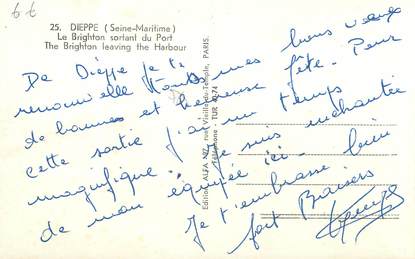 6 €
25. DIEPPE (Seine-Maritime)
Le Brighton sortant du Port
The Brighton leaving the Harbour
De Dieppe je te
renouvelle toutes mes bons vœux
de bonnes et heureuse fête. Pour
cette sortie j'ai un temps
magnifique. Je suis enchantée
de mon équipée ici.
Je t'embrasse bien
fort Baisers
Edition ALFA 127, rue Vieille-du-Temple, PARIS.
Téléphone - TUR 40-74